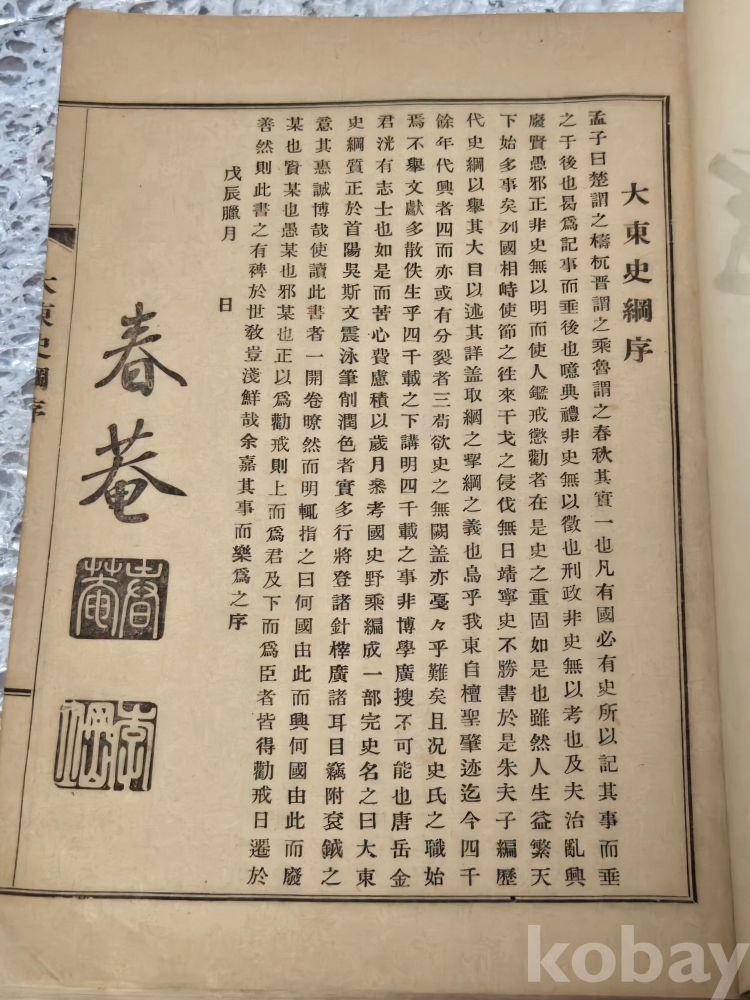 大東史綱序
孟子曰楚謂之檮杌晋謂之乘魯謂之春秋其實一也凡有國必有史所以記其事而垂
之于後也曷爲記事而垂後也噫典禮非史無以徵也刑政非史無以考也及夫治亂興
廢賢愚邪正非史無以明而使人鑑戒懲勸者在是史之重固如是也雖然人生益繁天
下始多事矣列國相峙使節之徃來干戈之侵伐無日靖寧史不勝書於是朱夫子編歷
代史綱以擧其大目以述其詳盖取綱之挈綱之義也烏乎我東自檀聖肇迹迄今四千
餘年代興者四而亦或有分裂者三苟欲史之無闕盖亦戞々乎難矣且况史氏之職始
焉不擧文獻多散佚生乎四千載之下講明四千載之事非博學廣搜不可能也唐岳金
君洸有志士也如是而苦心費慮積以歲月叅考國史野乘編成一部完史名之曰大東
史綱質正於首陽吳斯文震泳筆削潤色者實多行將登諸針榟廣諸耳目竊附袞鉞之
意其惠誠博哉使讀此書者一開卷暸然而明輒指之曰何國由此而興何國由此而廢
某也賢某也愚某也邪某也正以爲勸戒則上而爲君及下而爲臣者皆得勸戒日遷於
善然則此書之有裨於世敎豈淺鮮哉余嘉其事而樂爲之序
戊辰臘月 日
春菴
春菴
大東史綱序
kobay